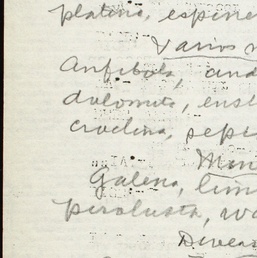 platino, espine
Varios
Anfibola, and
dolomita, enst
croclina, sepi
Min
Galena, lim
pirolusita, wo
Divers